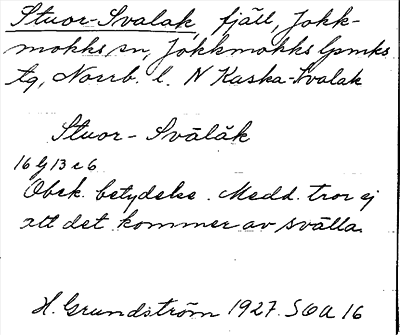 Stuor-Svalak, fjäll, Jokk-
mokks sn, Jokkmokks lpmks
tg, Norrb. l. N Kaska-Svalak
Stuor-Svālăk
16 G 13 c 6
Obek. betydelse. Medd. tror ej
att det kommer av svälla.
H. Grundström 1927. SOA 16